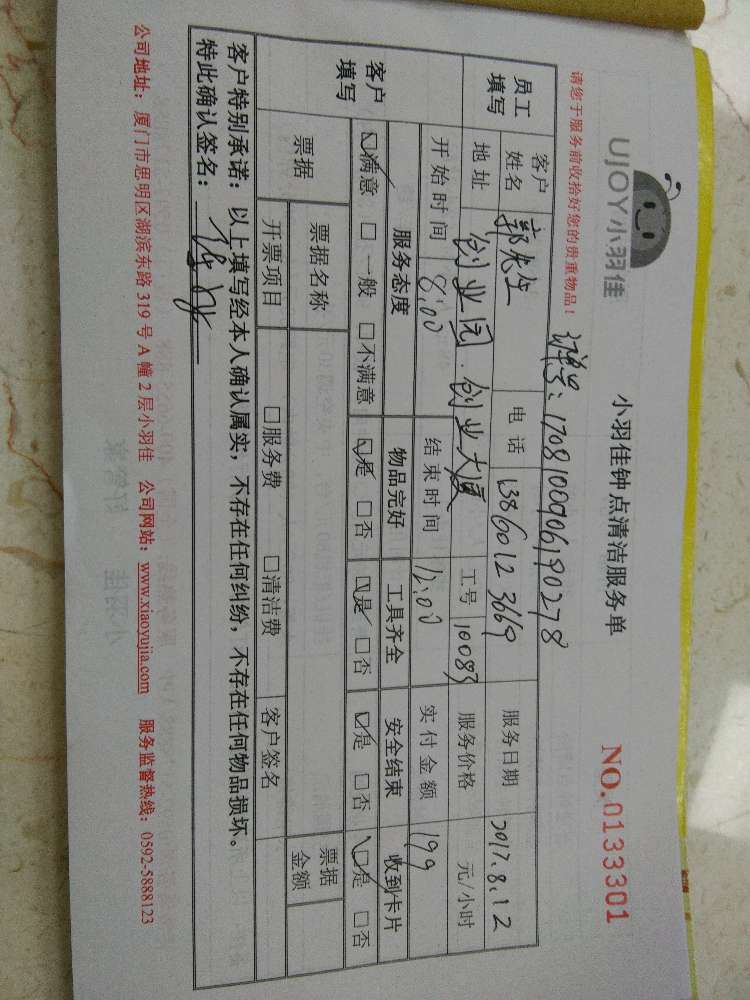 UJOY小羽佳
小羽佳钟点清洁服务单
NO.0133301
请您于服务前收拾好您的贵重物品！
订单号：1708100906190278
员工填写 客户姓名 郭先生 电话 13860123669 服务日期 2017.8.12
地址 创业园.创业大厦 工号 10083 服务价格 元/小时
开始时间 8:00 结束时间 12:00 实付金额 199
客户填写 服务态度 物品完好 工具齐全 安全结束 收到卡片
☑满意 □一般 □不满意 ☑是 □否 ☑是 □否 ☑是 □否 ☑是 □否
票据 票据名称 票据金额
开票项目 □服务费 □清洁费 客户签名
客户特别承诺：以上填写经本人确认属实，不存在任何纠纷，不存在任何物品损坏。
特此确认签名：
公司地址：厦门市思明区湖滨东路 319 号 A 幢 2 层小羽佳 公司网站：www.xiaoyujia.com 服务监督热线：0592-5888123